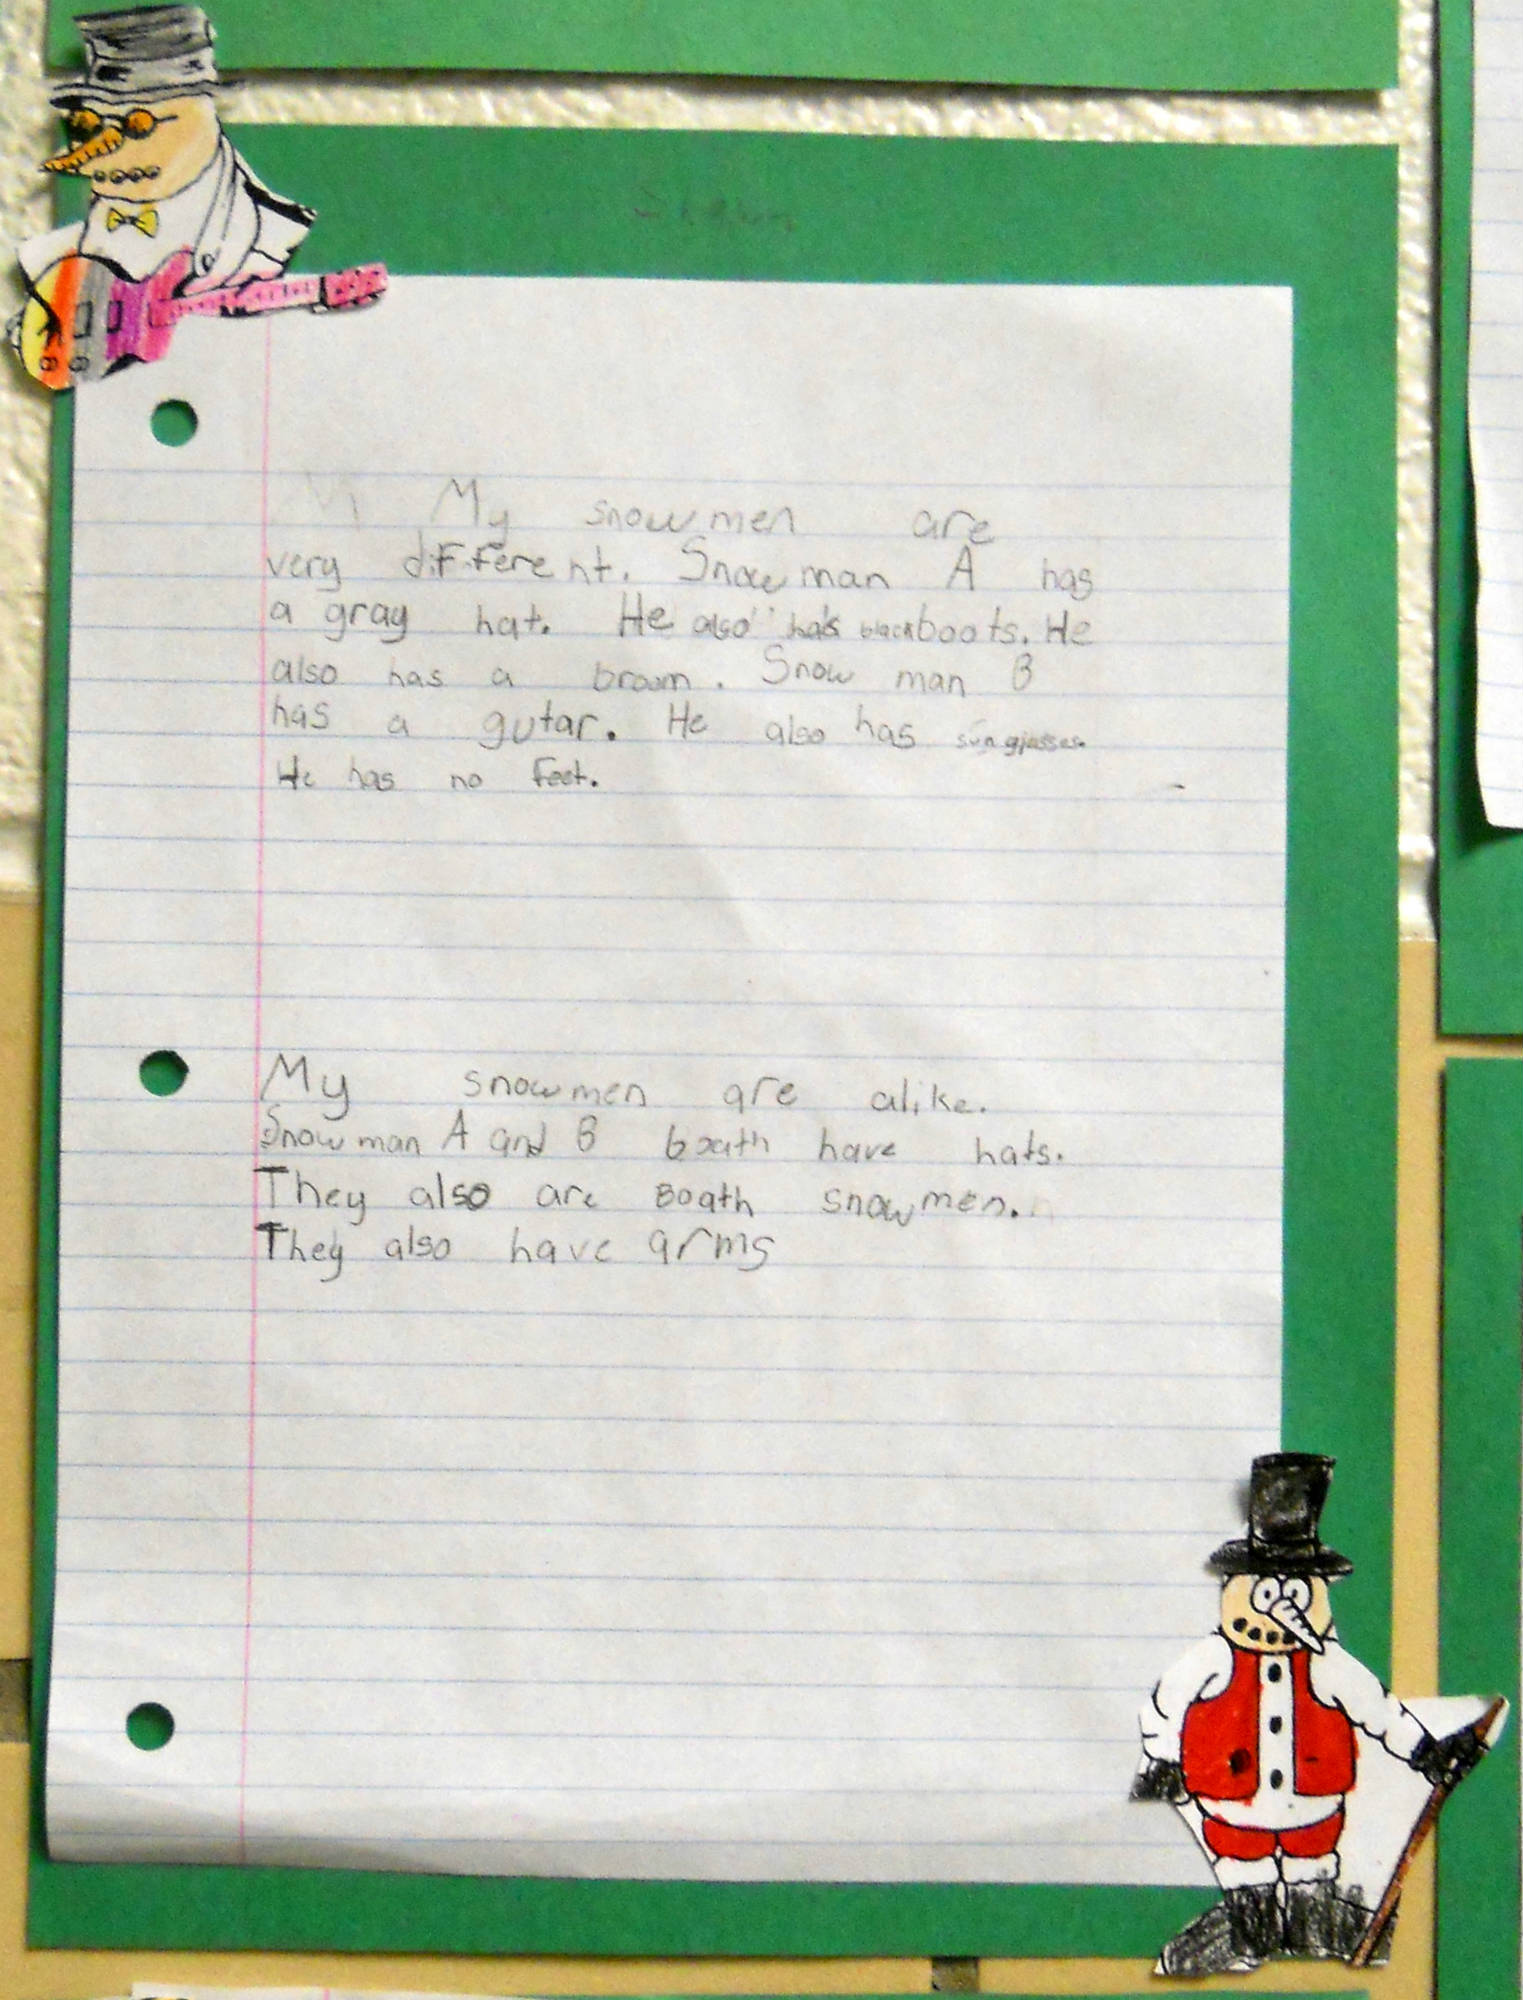 My snowmen are
very different. Snow man A has
a gray hat. He also has black boots. He
also has a broom. Snow man B
has a gutar. He also has sunglasses.
He has no feet.
My snowmen are alike.
Snow man A and B boath have hats.
They also are Boath snowmen.
They also have arms